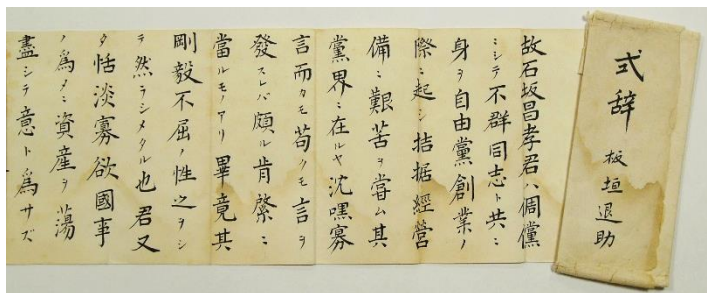 式辞
板垣退助
故石坂昌孝君ハ倜儻
ニシテ不群同志ト共ニ
身ヲ自由黨創業ノ
際ニ起シ拮据經營
備ニ艱苦ヲ嘗ム其
黨界ニ在ルヤ沈嘿寡
言而カモ苟クモ言ヲ
發スレバ頗ル肯綮ニ
當ルモノアリ畢竟其
剛毅不屈ノ性之ヲシ
テ然ラシメタル也君又
タ恬淡寡欲國事
ノ為メニ資産ヲ蕩
盡シテ意ト為サズ